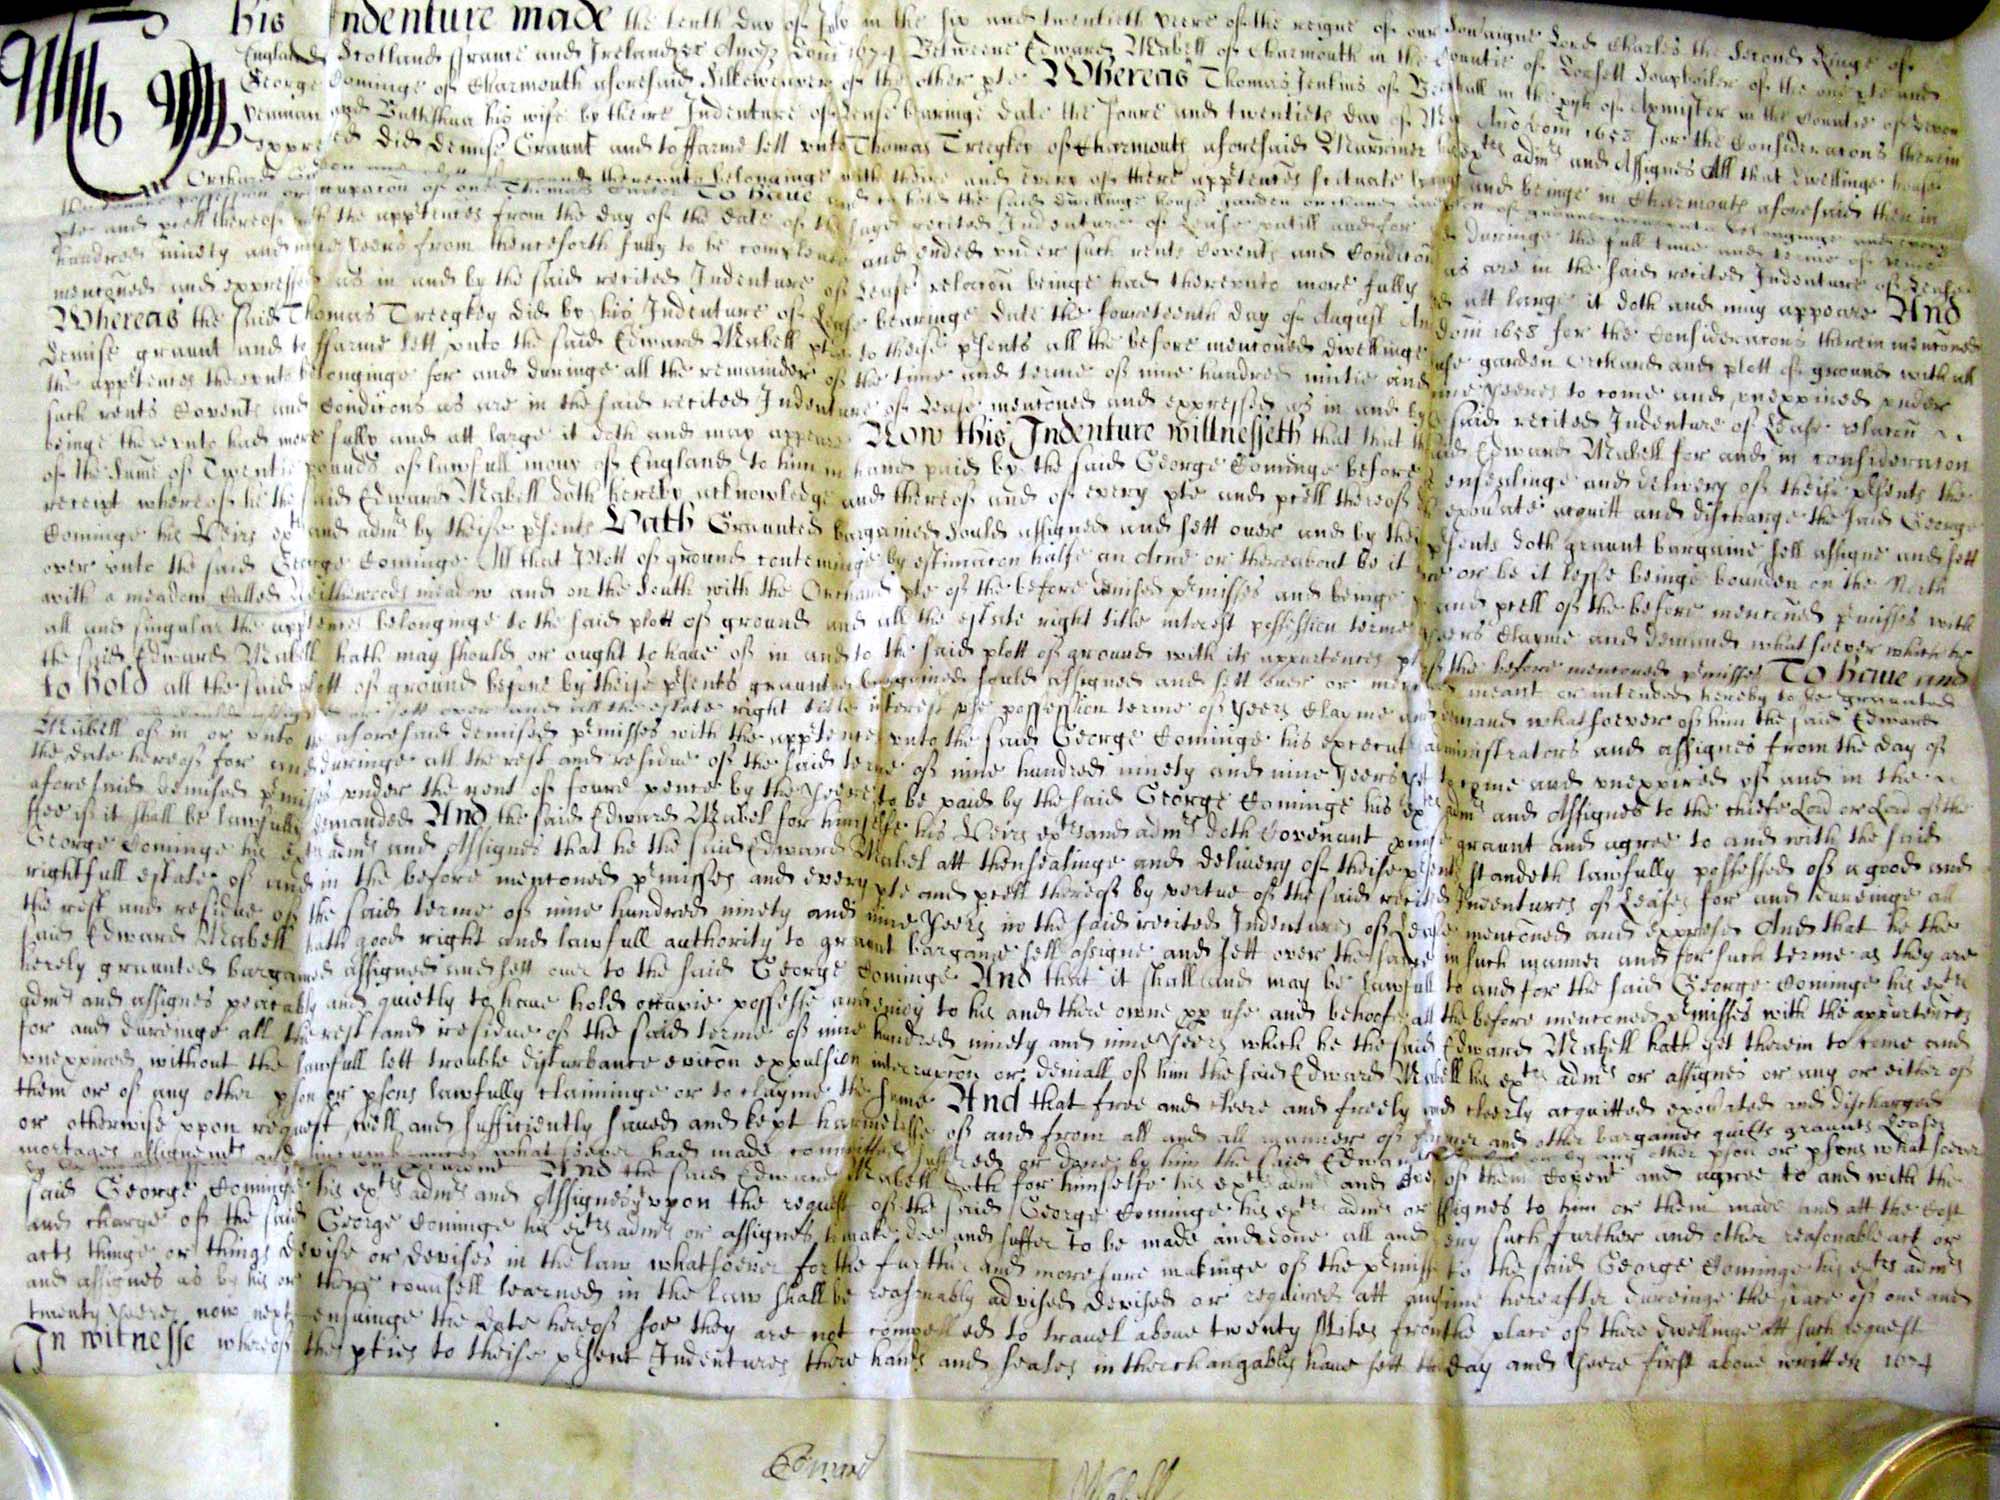 This Indenture made the tenth day of July in the six and twentieth yeere of the reigne of our Soveraigne Lord Charles the Second Kinge of
England Scotland ffrance and Ireland Anoq Dom 1674 Betweene Edward Mabell of Charmouth in the Countie of Dorsett Soapboiler of the one pte and
George Cominge of Charmouth aforesaid Silkeweaver of the other pte Whereas Thomas Jenkins of in the pish of Axmister in the Countie of Devon
yeuman and his wife by theire Indenture of Lease bearinge date the foure and twentieth day of Ano Dom 1653 for the Consideracons therein
expressed did demise Graunt and to ffarme lett unto Thomas Treegley of Charmouth aforesaid Marriner his exts adms and Assignes All that dwellinge house
Orchard thereunto belonginge with there and every of there apptences scituate lyinge and beinge in Charmouth aforesaid then in
the possession of one Thomas To have and to hold the said dwellinge house garden orchard belonginge and every
pte and pcell thereof with the apptences from the day of the date of the said recited Indenture of Lease untill and for and duringe the full time and terme of nine
hundred ninety and nine yeers from thenceforth fully to be compleate and ended under such rents Covents and Condicons as are in the said recited Indenture of Lease
mencioned and expressed as in and by the said recited Indenture of Lease relacon beinge had thereunto more fully and att large it doth and may appeare And
Whereas the said Thomas Treegley did by his Indenture of Lease bearinge date the fourteenth day of August Ano Dom 1658 for the Consideracons therein mencioned
demise graunt and to ffarme lett unto the said Edward Mabell ptie to theise psents all the before mencioned dwellinge house garden Orchard and plott of ground with all
the apptences thereunto belonginge for and duringe all the remainder of the time and terme of nine hundred nintie and nine yeeres to come and unexpired under
such rents Covents and Condicons as are in the said recited Indenture of Lease mencioned and expressed as in and by the said recited Indenture of Lease relacon
beinge thereunto had more fully and att large it doth and may appeare Now this Indenture wittnesseth that the said Edward Mabell for and in consideracon
of the Sume of Twentie pounds of lawfull mony of England to him in hand paid by the said George Cominge before the ensealinge and delivery of theise psents the
receipt whereof he the said Edward Mabell doth hereby acknowledge and thereof and of every pte and pcell thereof doth exonerate acquitt and discharge the said George
Cominge his Heirs exts and adms by theise psents Hath Graunted bargained sould assigned and sett over and by theis psents doth graunt bargaine sell assigne and sett
over unto the said George Cominge All that Plott of ground conteininge by estimacon halfe an Acre or thereabout be it more or be it lesse beinge bounden on the North
with a meadow called meadow and on the South with the Orchard pte of the before demised pmisses and beinge pte and pcell of the before mencioned pmisses with
all and singular the apptences belonginge to the said plott of ground and all the estate right title interest possession terme of yeers Clayme and demand whatsoever which he
the said Edward Mabell hath may should or ought to have of in and to the said plott of ground with its appurtences pte of the before mencioned pmisses To have and
to hold all the said plott of ground before by theise psents graunted bargained sould assigned and sett over or meant or intended hereby to be graunted
sett over and all the estate right title interest use possession terme of yeers Clayme and demand whatsoever of him the said Edward
Mabell of in or unto the aforesaid demised pmisses with the apptences unto the said George Cominge his executors administrators and assignes from the day of
the date hereof for and duringe all the rest and residue of the said terme of nine hundred ninety and nine yeers yet to come and unexpired of and in the
aforesaid demised pmisses under the rent of foure pence by the yeere to be paid by the said George Cominge his exts adms and Assignes to the chiefe Lord or Lord of the
ffee if it shall be lawfully demanded And the said Edward Mabel for himselfe his Heirs exts and adms doth Covenant pmise graunt and agree to and with the said
George Cominge his exts adms and Assignes that he the said Edward Mabel att thensealinge and delivery of theise psents standeth lawfully possessed of a good and
rightfull estate of and in the before mencioned pmisses and every pte and pcell thereof by vertue of the said recited Indentures of Leases for and dureinge all
the rest and residue of the said terme of nine hundred ninety and nine yeers in the said recited Indentures of Lease mencioned and expressed And that he the
said Edward Mabell hath good right and lawfull authority to graunt bargaine sell assigne and sett over the same in such manner and for such terme as they are
herely graunted bargained assigned and sett over to the said George Cominge And that it shall and may be lawfull to and for the said George Cominge his exts
adms and assignes peacably and quietly to have hold occupie possesse and enioy to his and there owne pp use and behoofe all the before mencioned pmisses with the appurtences
for and dureinge all the rest and residue of the said terme of nine hundred ninety and nine yeers which he the said Edward Mabell hath yet therein to come and
unexpired without the lawfull lett trouble disturbance evicon expulsion interrupcon or deniall of him the said Edward Mabell his exts adms or assignes or any or either of
them or of any other pson or psons lawfully claiminge or to clayme the same And that free and cleere and freely and cleerly acquitted exonerated and discharged
or otherwise upon request well and sufficiently saved and kept harmelesse of and from all and all manner of former and other bargaines guifts graunts Leases
mortages assignemts and incumbrances whatsoever had made comitted suffered or done by him the said Edward or by any other pson or psons whatsoever
And the said Edward Mabell doth for himselfe his exts adms and every of them Covent and agree to and with the
said George Cominge his exts adms and Assignes upon the request of the said George Cominge his exts adms or Assignes to him or them made and att the Cost
and charge of the said George Cominge his exts adms or assignes to make doe and suffer to be made and done all and every such further and other reasonable act or
acts thinge or things devise or devises in the law whatsoever for the further and more sure makinge of the pmisses to the said George Cominge his exts adms
and assignes as by his or there counsell learned in the law shall be reasonably advised devised or required att anytime hereafter dureinge the space of one and
twenty yeeres now next ensuinge the date hereof soe they are not compelled to travel above twenty Miles from the place of there dwellinge att such request
In witnesse whereof the pties to theise psent Indentures there hands and seales interchangably have sett the day and yeere first above written 1674
Edward Mabell